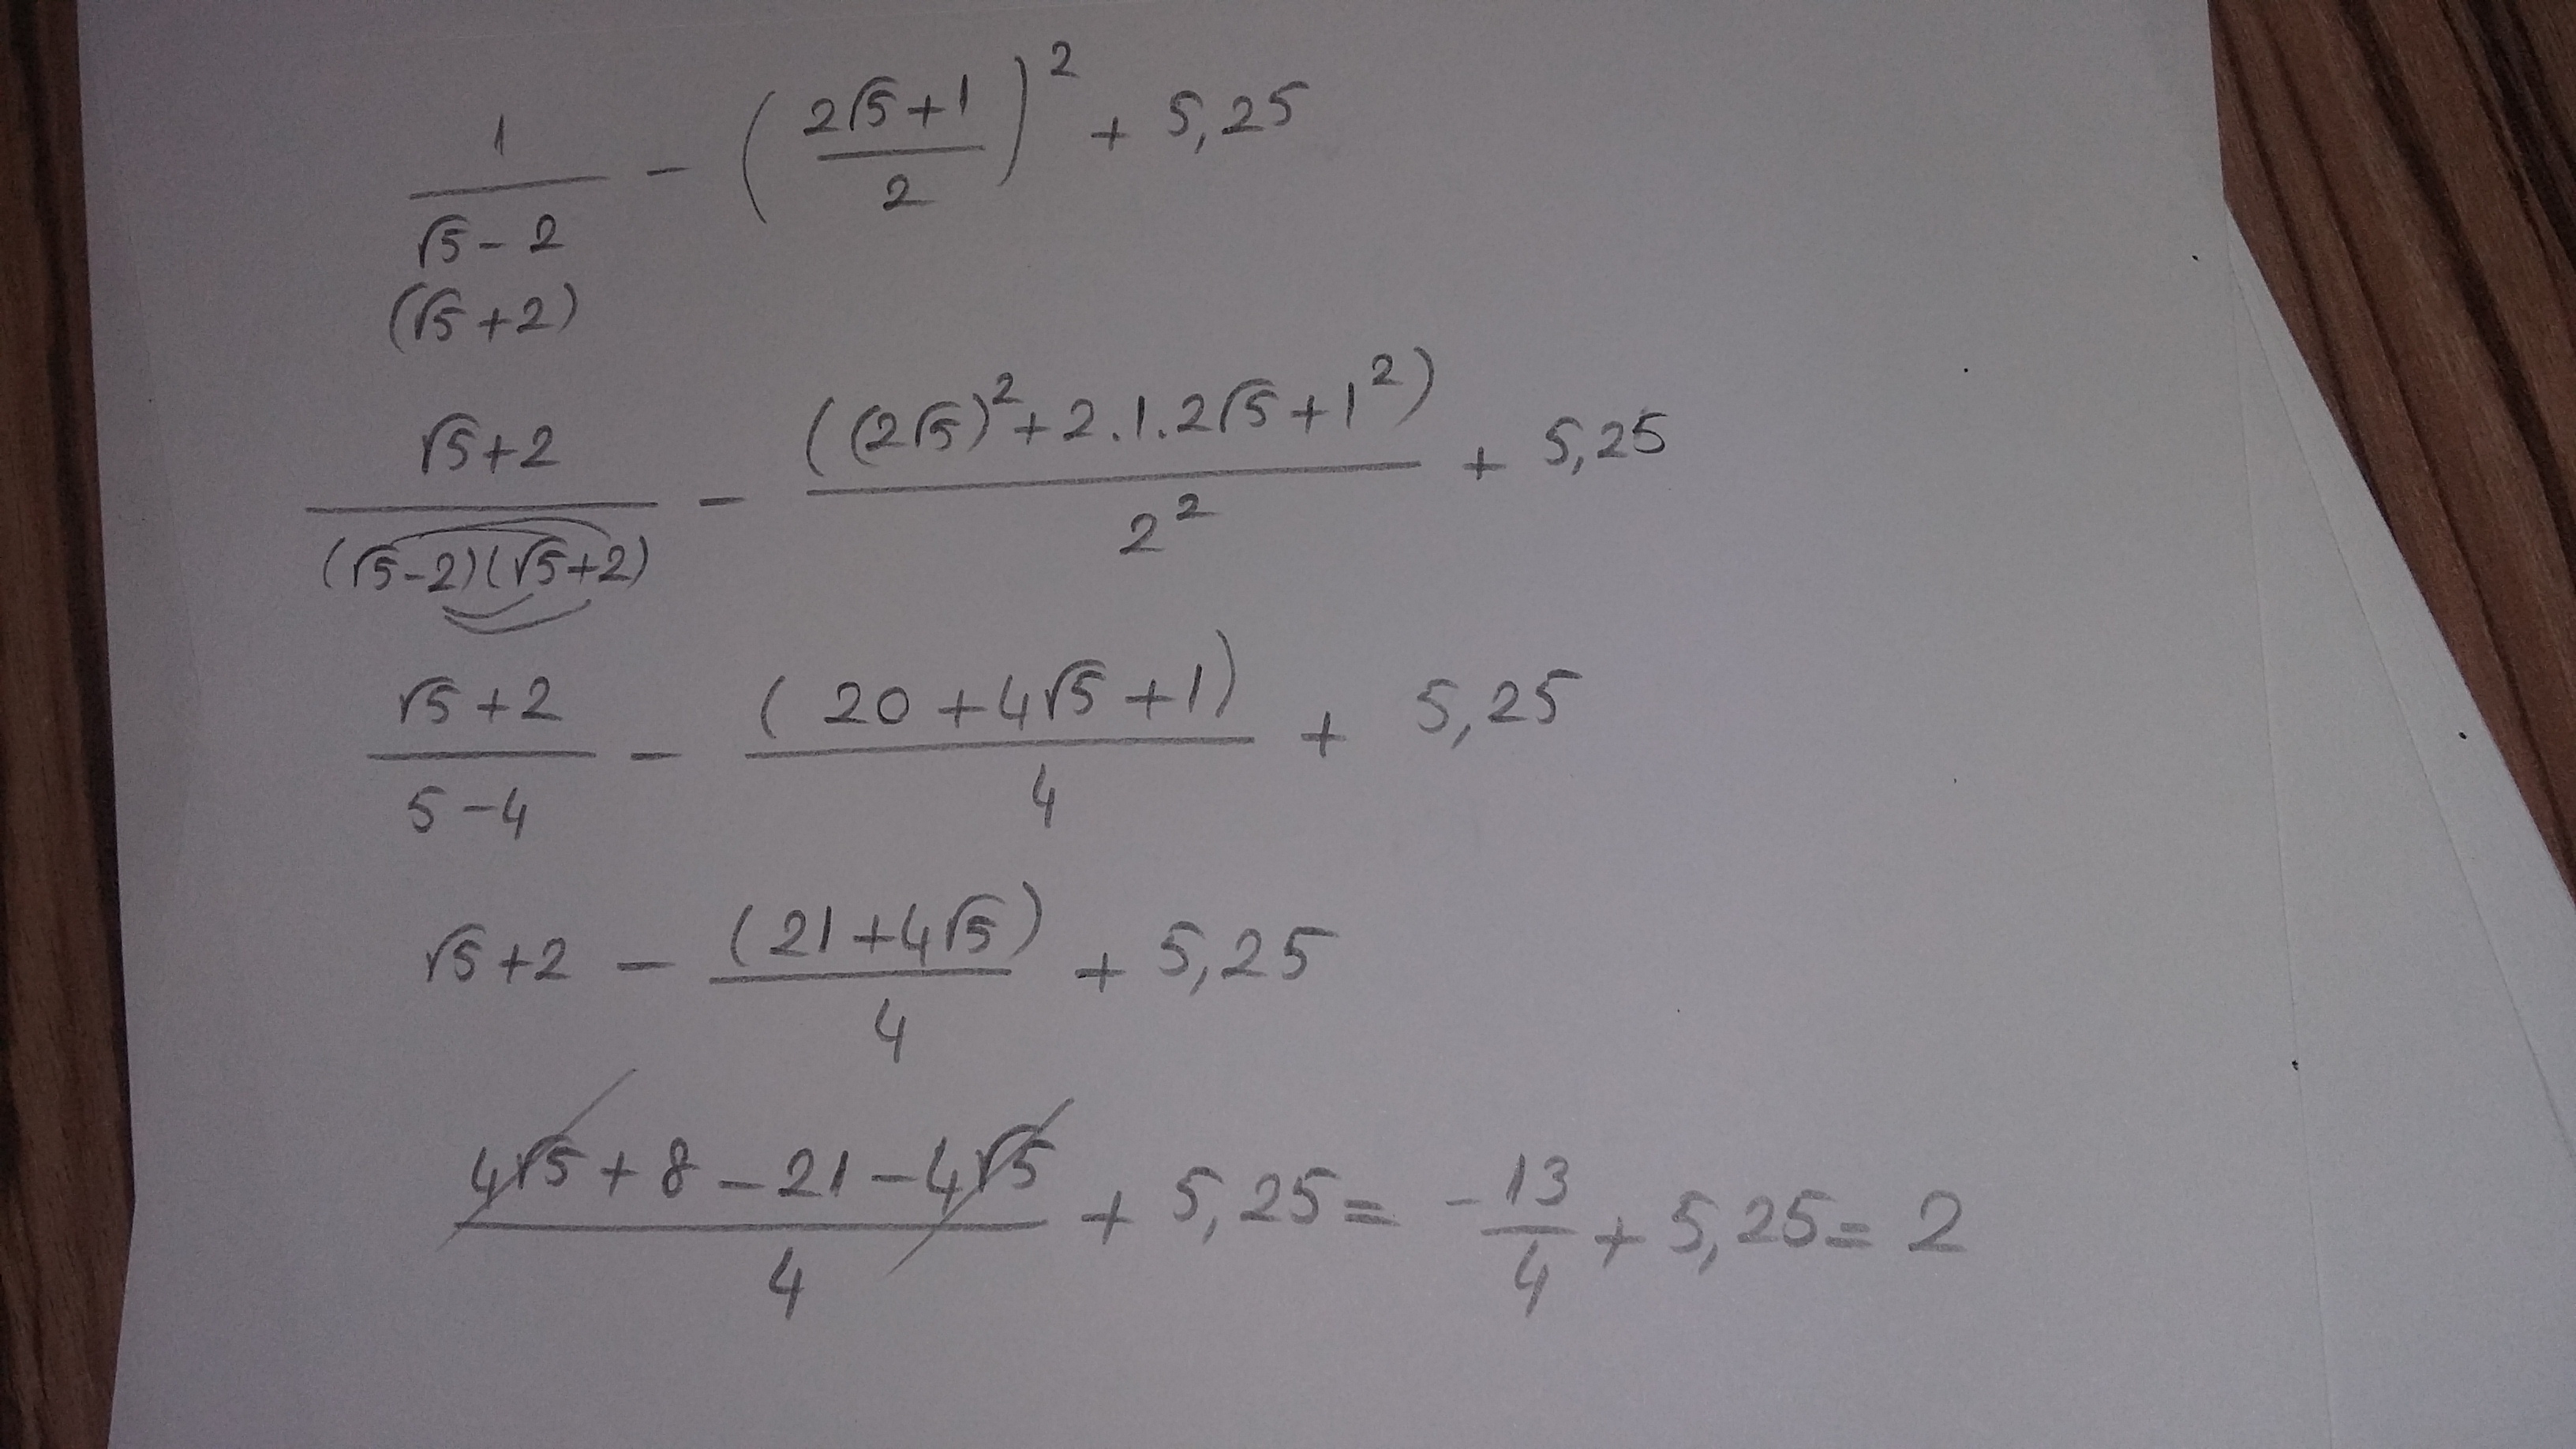 1/(√5-2) - ((2√5+1)/2)² + 5,25
(√5+2)
(√5+2)/((√5-2)(√5+2)) - ((2√5)²+2.1.2√5+1²)/2² + 5,25
(√5+2)/(5-4) - (20+4√5+1)/4 + 5,25
√5+2 - (21+4√5)/4 + 5,25
(4√5+8-21-4√5)/4 + 5,25 = -13/4 + 5,25 = 2